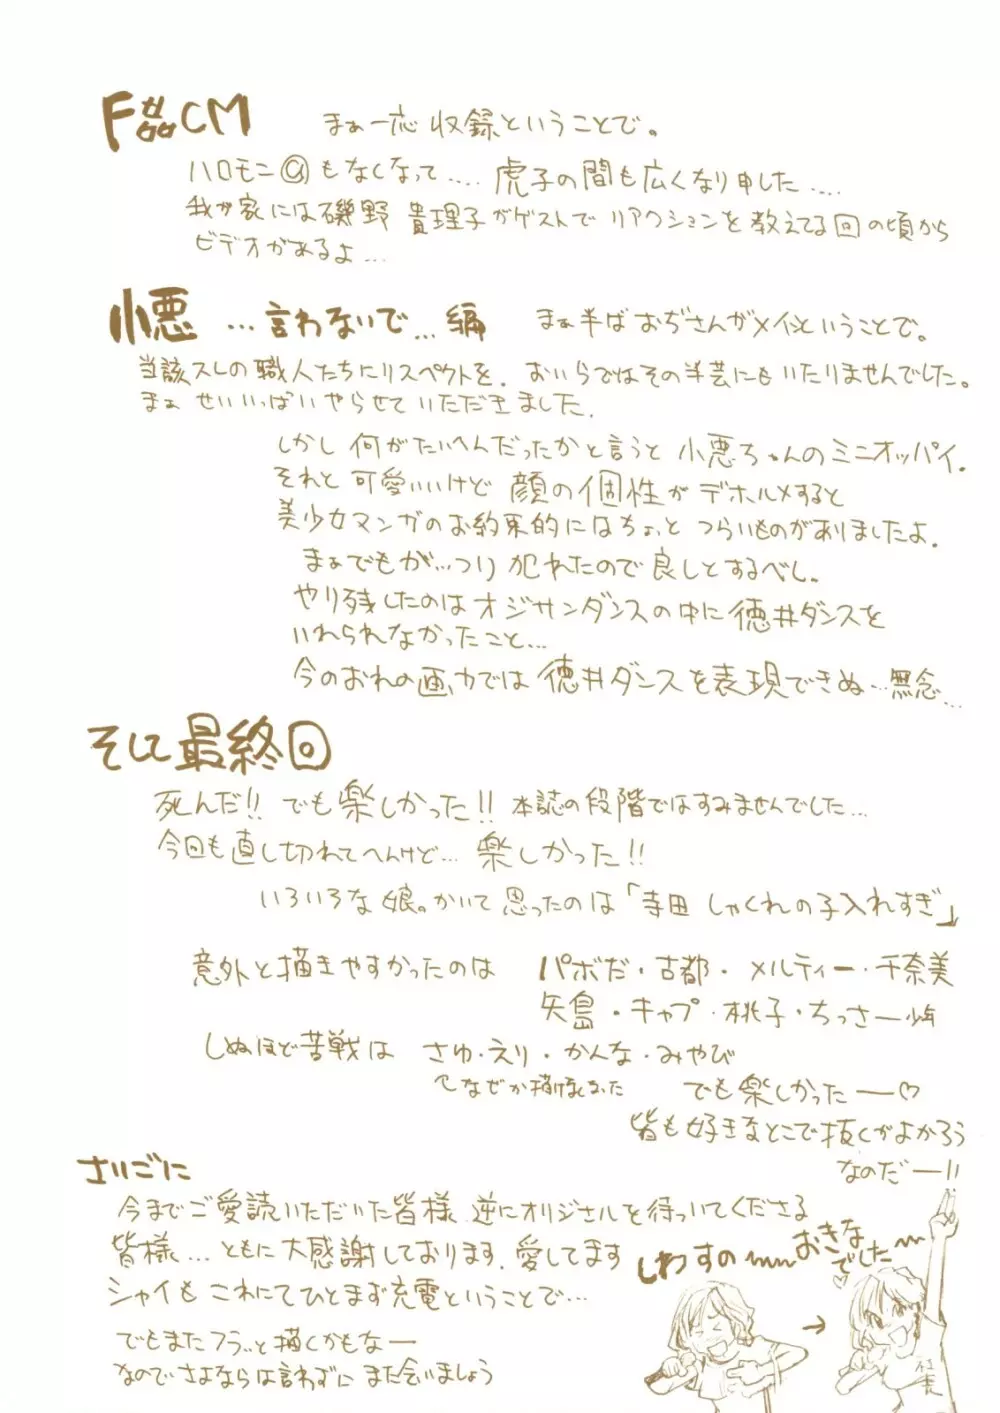 F姦CM
まぁ一応 収録ということで。
ハロモニ@もなくなって.... 虎子の間も広くなり申した....
我が家には磯野 貴理子がゲストで リアクションを教えてる回の頃から
ビデオがあるよ...
小悪 ...言わないで...編
まぁ半ば おぢさんがメインということで。
当該スレの職人たちにリスペクトを. おいらではその半芸にもいたりませんでした。
まぁ せいいっぱいやらせていただきました.
しかし 何がたいへんだったかと言うと 小悪ちゃんのミニオッパイ.
それと 可愛いいけど 顔の個性がデホルメすると
美少女マンガのお約束的にはちょっと つらいものがありましたよ.
まぁでもが...っつり 犯れたので良しとするべし。
やり残したのはオジサンダンスの中に徳井ダンスを
いれられなかったこと...
今のおれの画力では 徳井ダンスを表現できぬ...無念...
そして最終回
死んだ!! でも楽しかった!! 本誌の段階ではすみませんでした...
今回も直し切れてへんけど... 楽しかった!!
いろいろな娘。かいて 思ったのは「寺田 しゃくれの子入れすぎ」
意外と描きやすかったのは パボだ・古都・メルティー・千奈美
矢島・キャプ・桃子・ちっさー少年
しぬほど苦戦は さゆ・えり・かんな・みやび
でも楽しかったー♡
皆も好きなとこで抜くがよかろう
なのだー!!
さいごに
今までご愛読いただいた皆様 逆にオリジナルを待っいてくださる
皆様... ともに大感謝しております. 愛してます
シャイも これにてひとまず充電ということで...
でもまたフラッと描くかもなー
なので さよならは言わずに また会いましょう
しわすの〜
おきな
でした〜